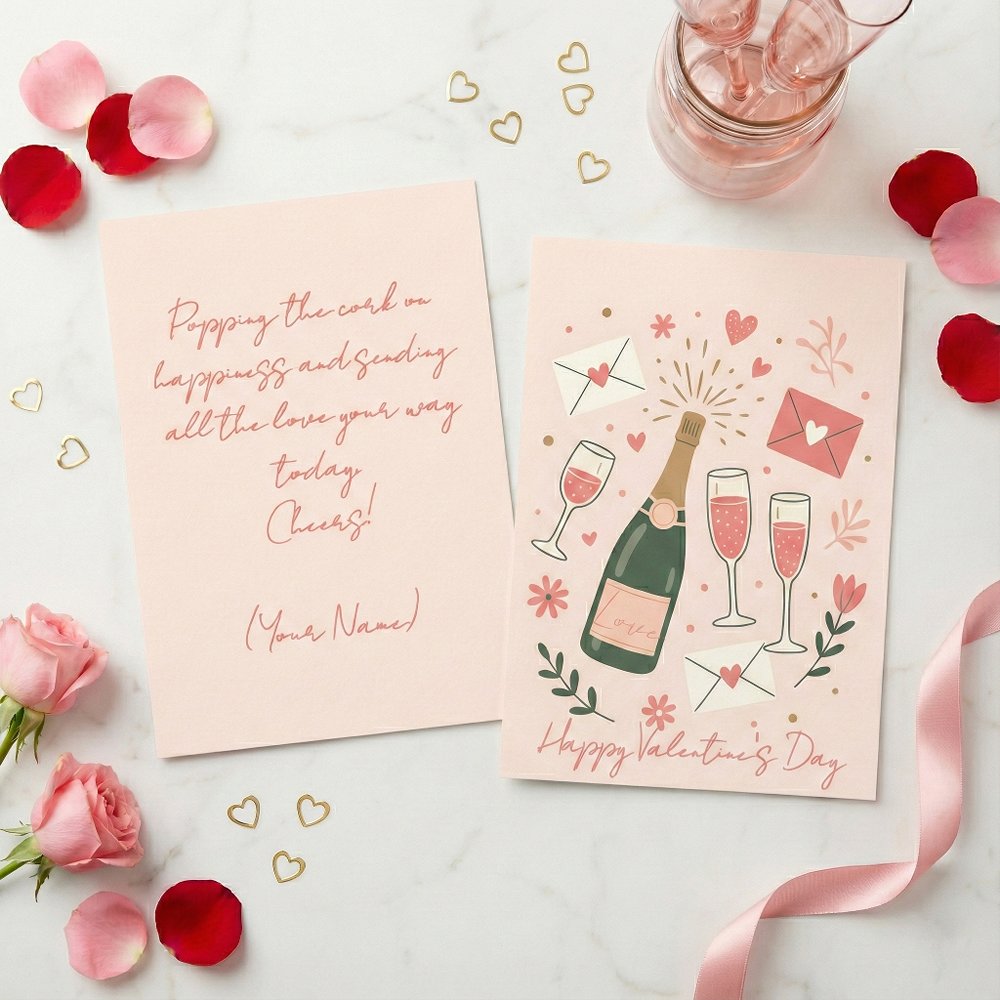 Popping the cork on
happiness and sending
all the love your way
today.
Cheers!
(Your Name)
Love
Happy Valentine's Day